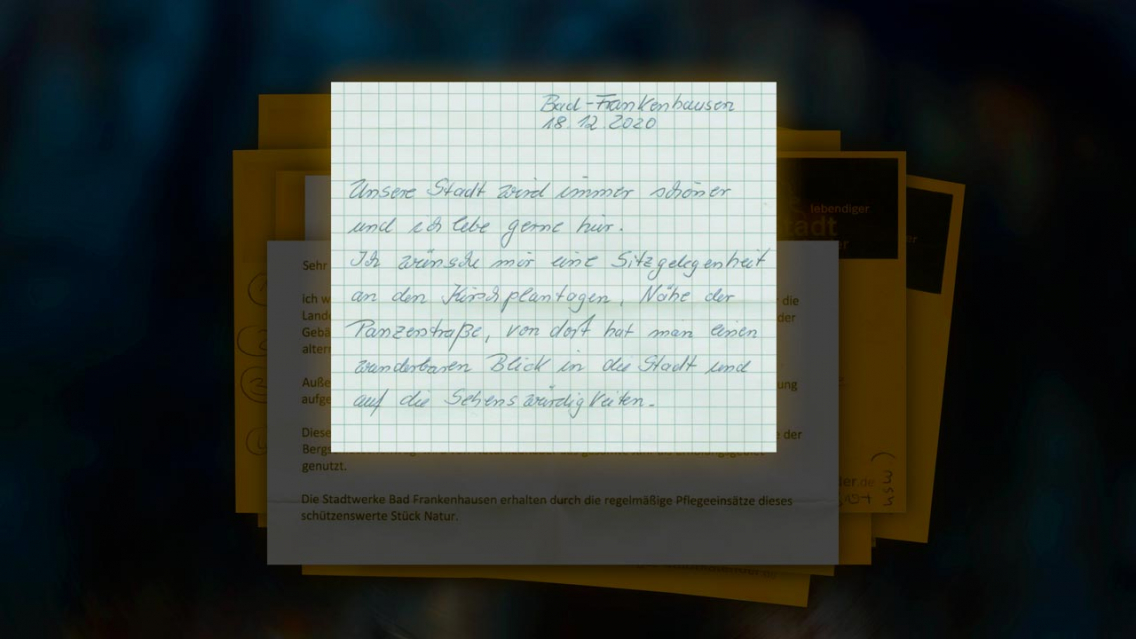 Bad-Frankenhausen
18.12.2020
Unsere Stadt wird immer schöner
und ich lebe gerne hier.
Ich wünsche mir eine Sitzgelegenheit
an den Kirschplantagen, Nähe der
Panzerstraße, von dort hat man einen
wunderbaren Blick in die Stadt und
auf die Sehenswürdigkeiten.
lebendiger
tadt
er
er
Sehr
ich w
die
Lande
der
Gebä
altern
Auße
ung
aufge
Diese
e der
Bergs
genutzt.
Die Stadtwerke Bad Frankenhausen erhalten durch die regelmäßige Pflegeeinsätze dieses
schützenswerte Stück Natur.
der.de